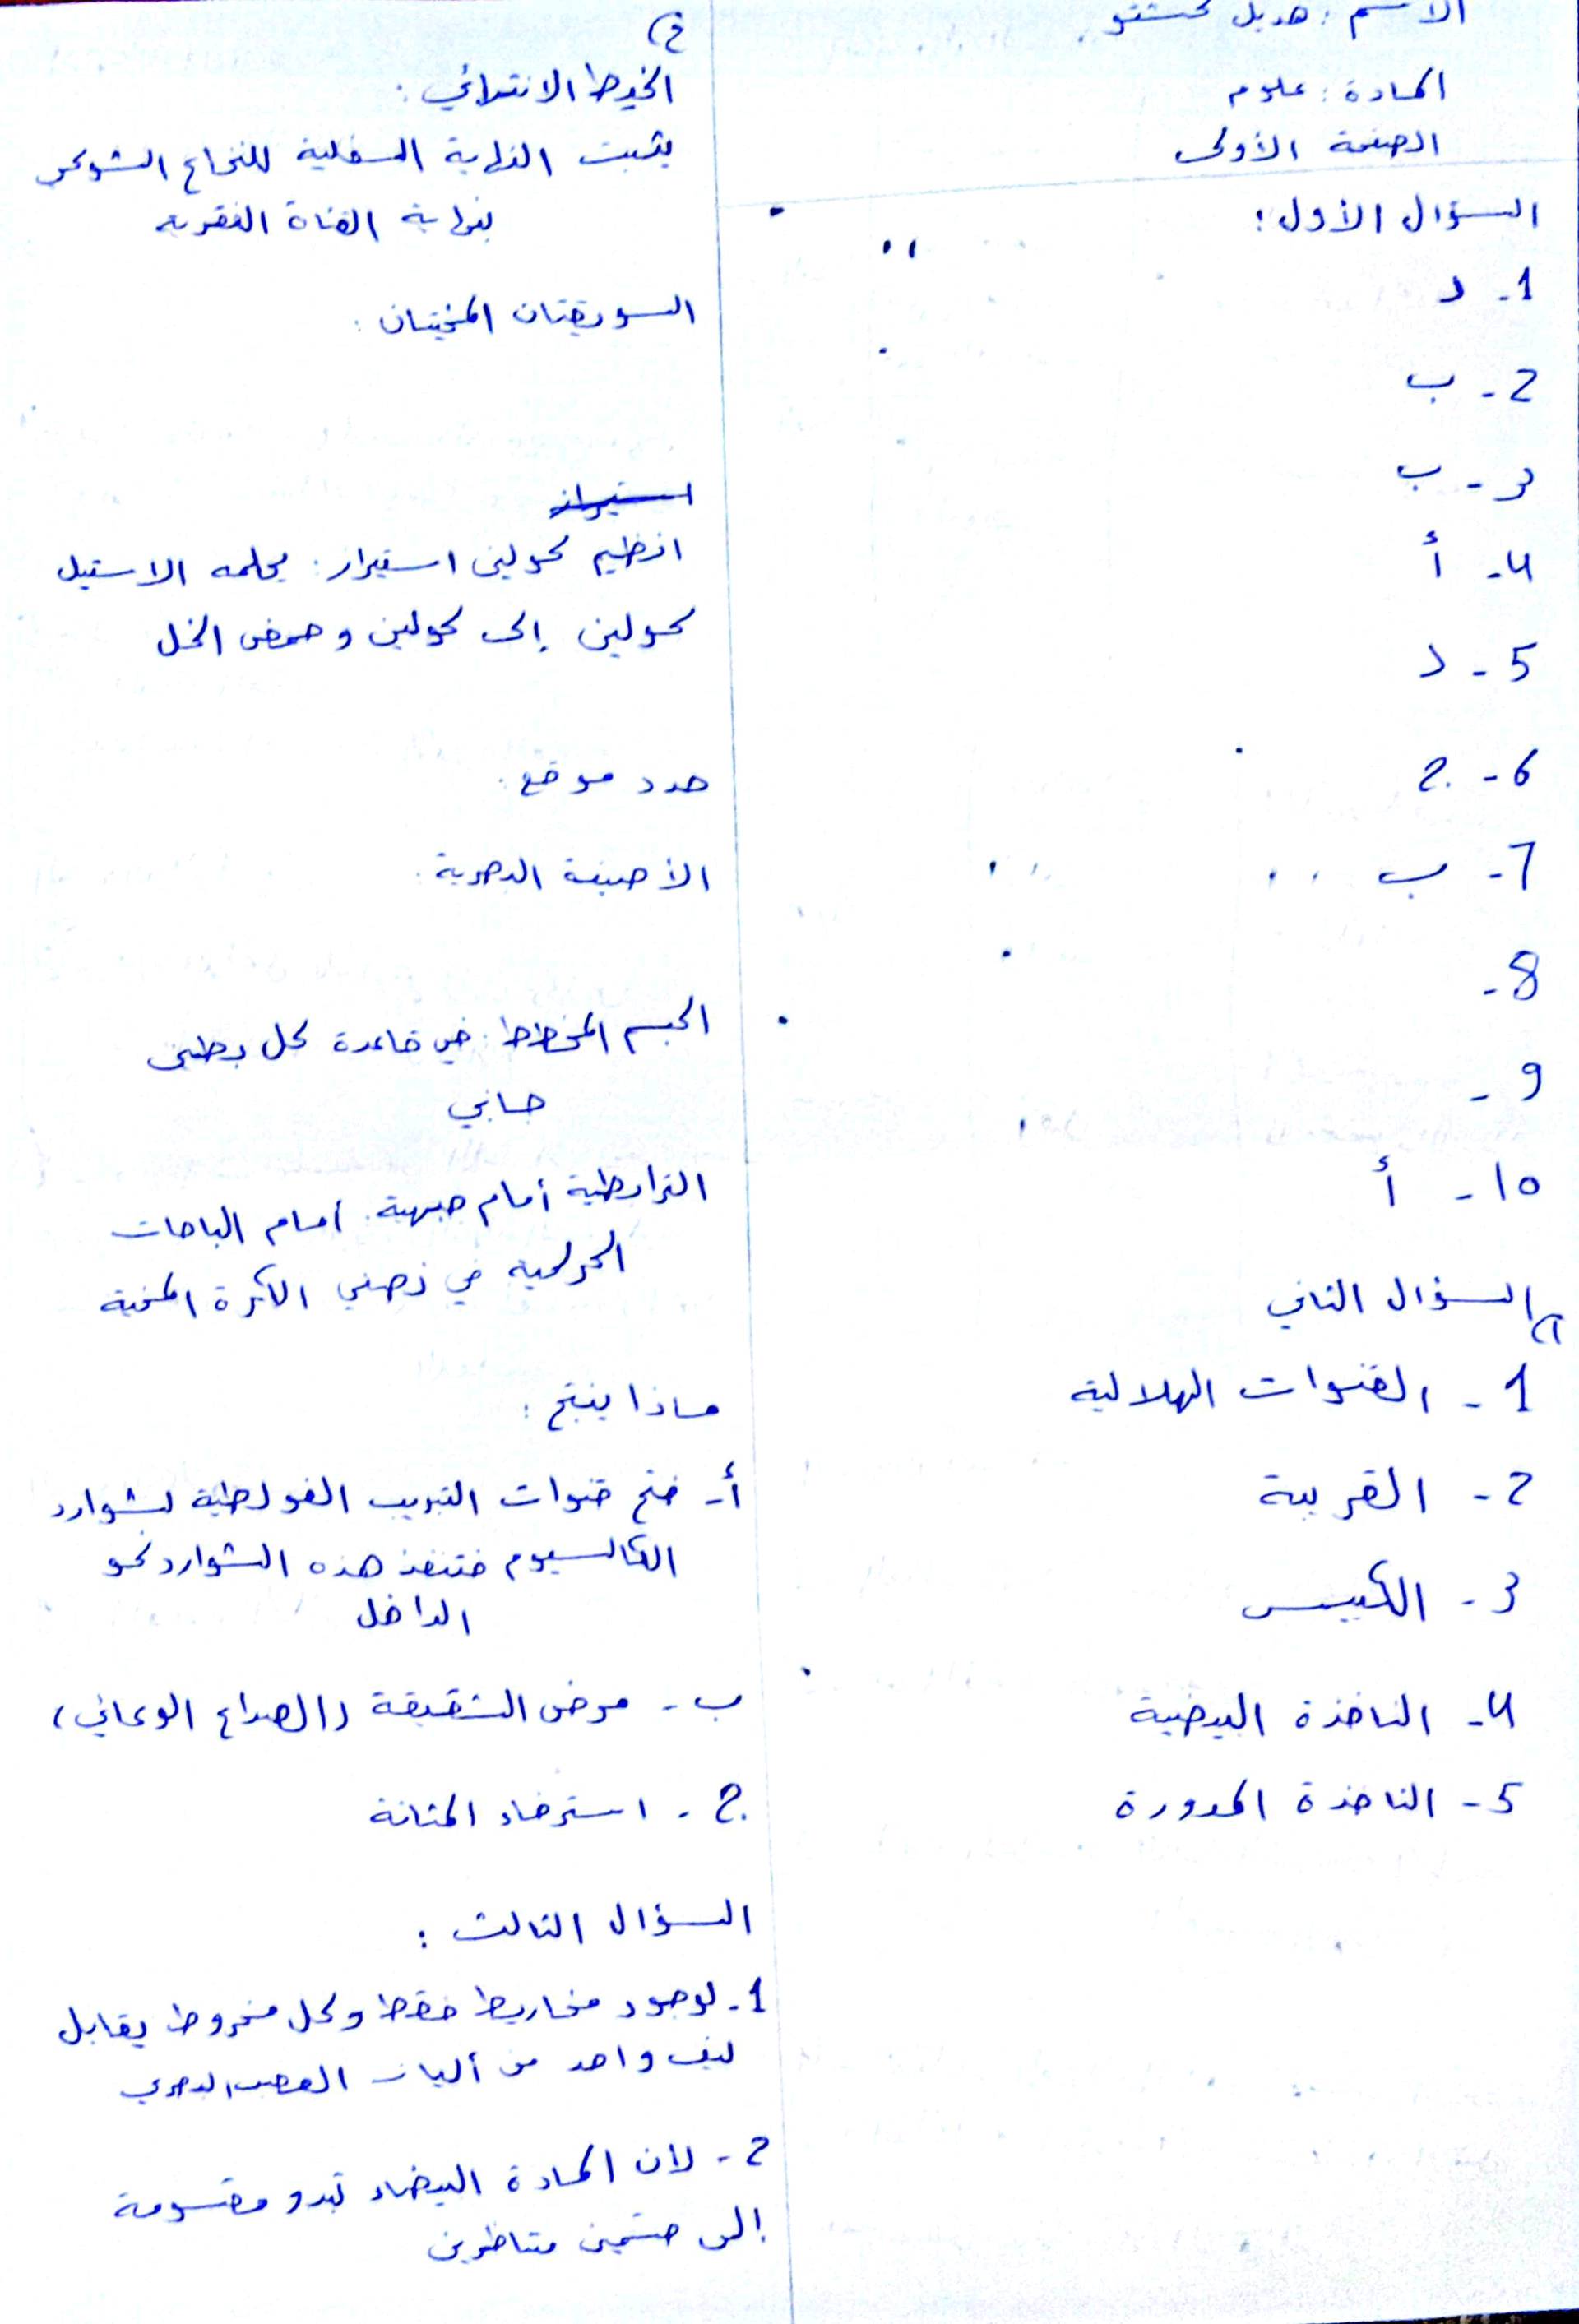 الاسم : هديل
المادة : علوم
الصفحة الأولى
السؤال الأول :
1 - د
2 - ب
3 - ب
4 - أ
5 - د
6 - ج
7 - ب
8 -
9 -
10 - أ
السؤال الثاني
1 - القنوات الهلالية
2 - القريبة
3 - الكييس
4 - النافذة البيضية
5 - النافذة المدورة
الخيط الانتهائي :
يثبت النهاية السفلية للنخاع الشوكي
بنهاية القناة الفقرية
السويقتان المخيتان :
انظيم كولين استيراز : يحلمه الاستيل
كولين إلى كولين وحمض الخل
حدد موقع :
الأصبغة البصرية :
الجسم المخطط : في قاعدة كل بطين
جانبي
الترابطية أمام جبهية : أمام الباحات
الحركية في نصفي الكرة المخية
ماذا ينتج :
أ - فتح قنوات التبويب الفولطية لشوارد
الكالسيوم فتنفذ هذه الشوارد نحو
الداخل
ب - مرض الشقيقة (الصداع الوعائي)
ج - استرخاء المثانة
السؤال الثالث :
1 - لوجود مخاريط فقط وكل مخروط يقابل
ليف واحد من ألياف العصب البصري
2 - لان المادة البيضاء تبدو مقسومة
إلى قسمين متناظرين